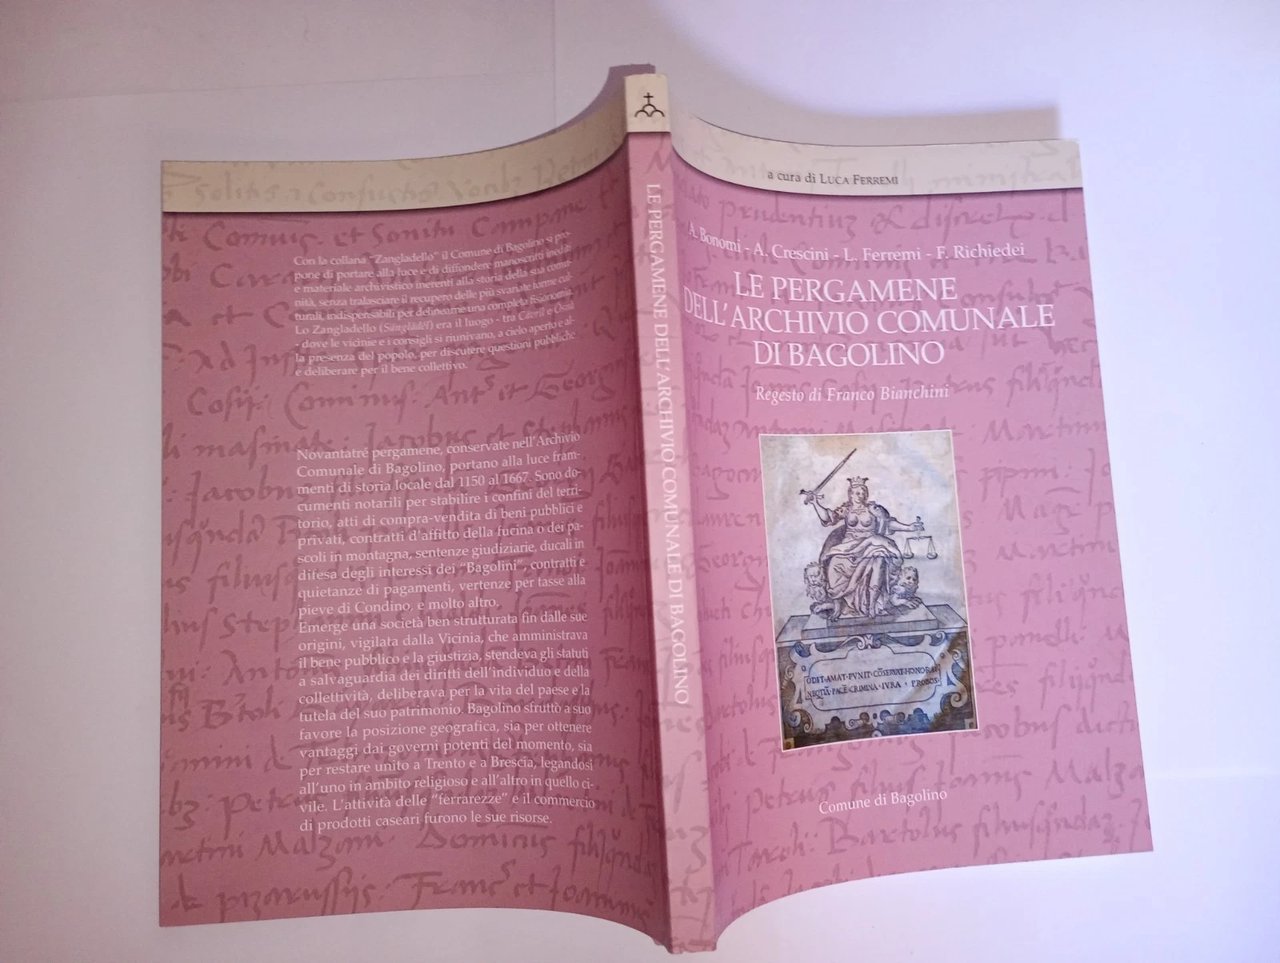 Con la collana "Zangladello" il Comune di Bagolino si pro-
pone di portare alla luce e di diffondere manoscritti inediti
e materiale archivistico inerenti alla storia della sua comu-
nità, senza tralasciare il recupero delle più svariate forme cul-
turali, indispensabili per delinearne una completa fisionomia.
Lo Zangladello (Sanglàdèl) era il luogo - tra Càvril e Òsnà
- dove le vicinie e i consigli si riunivano, a cielo aperto e al-
la presenza del popolo, per discutere questioni pubbliche
e deliberare per il bene collettivo.
Novantatré pergamene, conservate nell'Archivio
Comunale di Bagolino, portano alla luce fram-
menti di storia locale dal 1150 al 1667. Sono do-
cumenti notarili per stabilire i confini del terri-
torio, atti di compra-vendita di beni pubblici e
privati, contratti d'affitto della fucina o dei pa-
scoli in montagna, sentenze giudiziarie, ducali in
difesa degli interessi dei "Bagolini", contratti e
quietanze di pagamenti, vertenze per tasse alla
pieve di Condino, e molto altro.
Emerge una società ben strutturata fin dalle sue
origini, vigilata dalla Vicinia, che amministrava
il bene pubblico e la giustizia, stendeva gli statuti
a salvaguardia dei diritti dell'individuo e della
collettività, deliberava per la vita del paese e la
tutela del suo patrimonio. Bagolino sfruttò a suo
favore la posizione geografica, sia per ottenere
vantaggi dai governi potenti del momento, sia
per restare unito a Trento e a Brescia, legandosi
all'uno in ambito religioso e all'altro in quello ci-
vile. L'attività delle "ferrarezze" e il commercio
di prodotti caseari furono le sue risorse.
LE PERGAMENE DELL'ARCHIVIO COMUNALE DI BAGOLINO
a cura di LUCA FERREMI
A. Bonomi - A. Crescini - L. Ferremi - F. Richiedei
LE PERGAMENE
DELL'ARCHIVIO COMUNALE
DI BAGOLINO
Regesto di Franco Bianchini
ODIT·AMAT·PVNIT·CŌSERVAT·HONORAT
NEQTIĀ·PACĒ·CRIMINA·IVRA·PROBOS
Comune di Bagolino